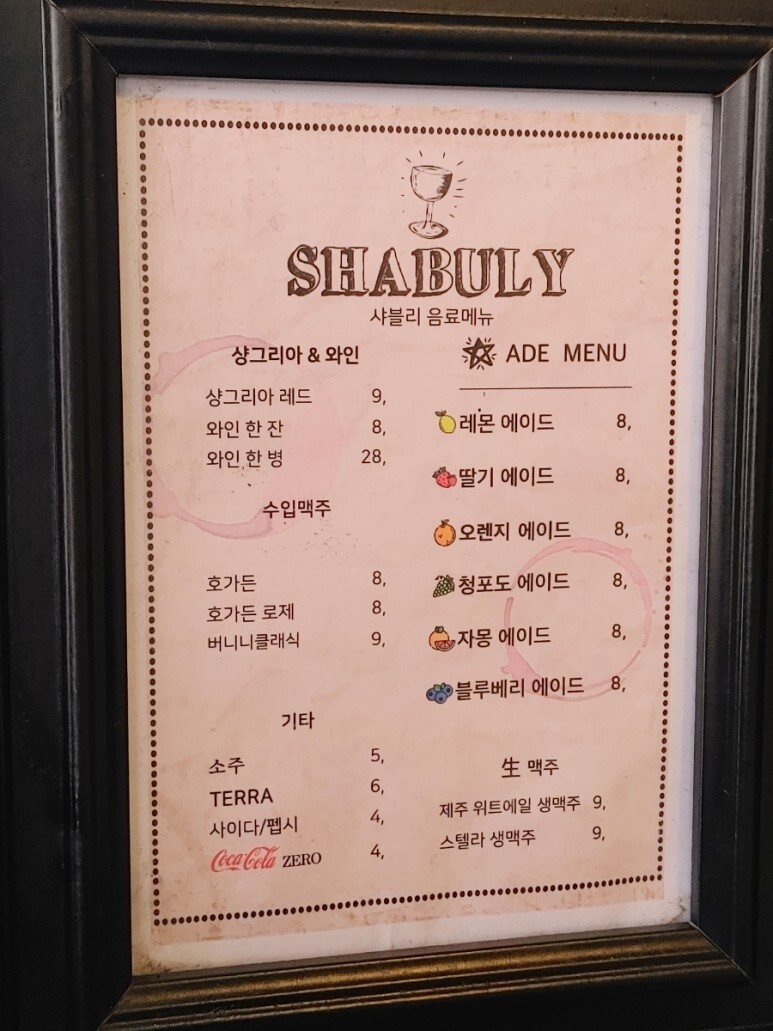 SHABULY
샤블리 음료메뉴
샹그리아 & 와인
샹그리아 레드 9,
와인 한 잔 8,
와인 한 병 28,
수입맥주
호가든 8,
호가든 로제 8,
버니니클래식 9,
기타
소주 5,
TERRA 6,
사이다/펩시 4,
Coca-Cola ZERO 4,
ADE MENU
레몬 에이드 8,
딸기 에이드 8,
오렌지 에이드 8,
청포도 에이드 8,
자몽 에이드 8,
블루베리 에이드 8,
生 맥주
제주 위트에일 생맥주 9,
스텔라 생맥주 9,